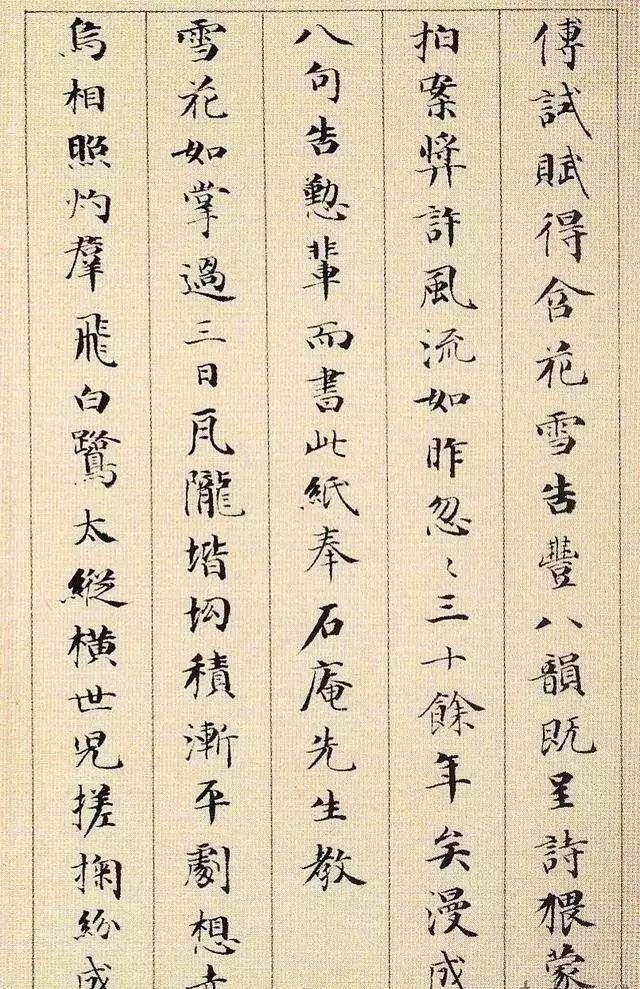 傅試賦得含花雪告豐八韻既呈詩猥蒙
拍案獎許風流如昨忽〻三十餘年矣漫成
八句告懃輩而書此紙奉石庵先生教
雪花如掌過三日瓦隴堦坳積漸平劇想
烏相照灼羣飛白鷺太縱橫世兒搓掬紛成